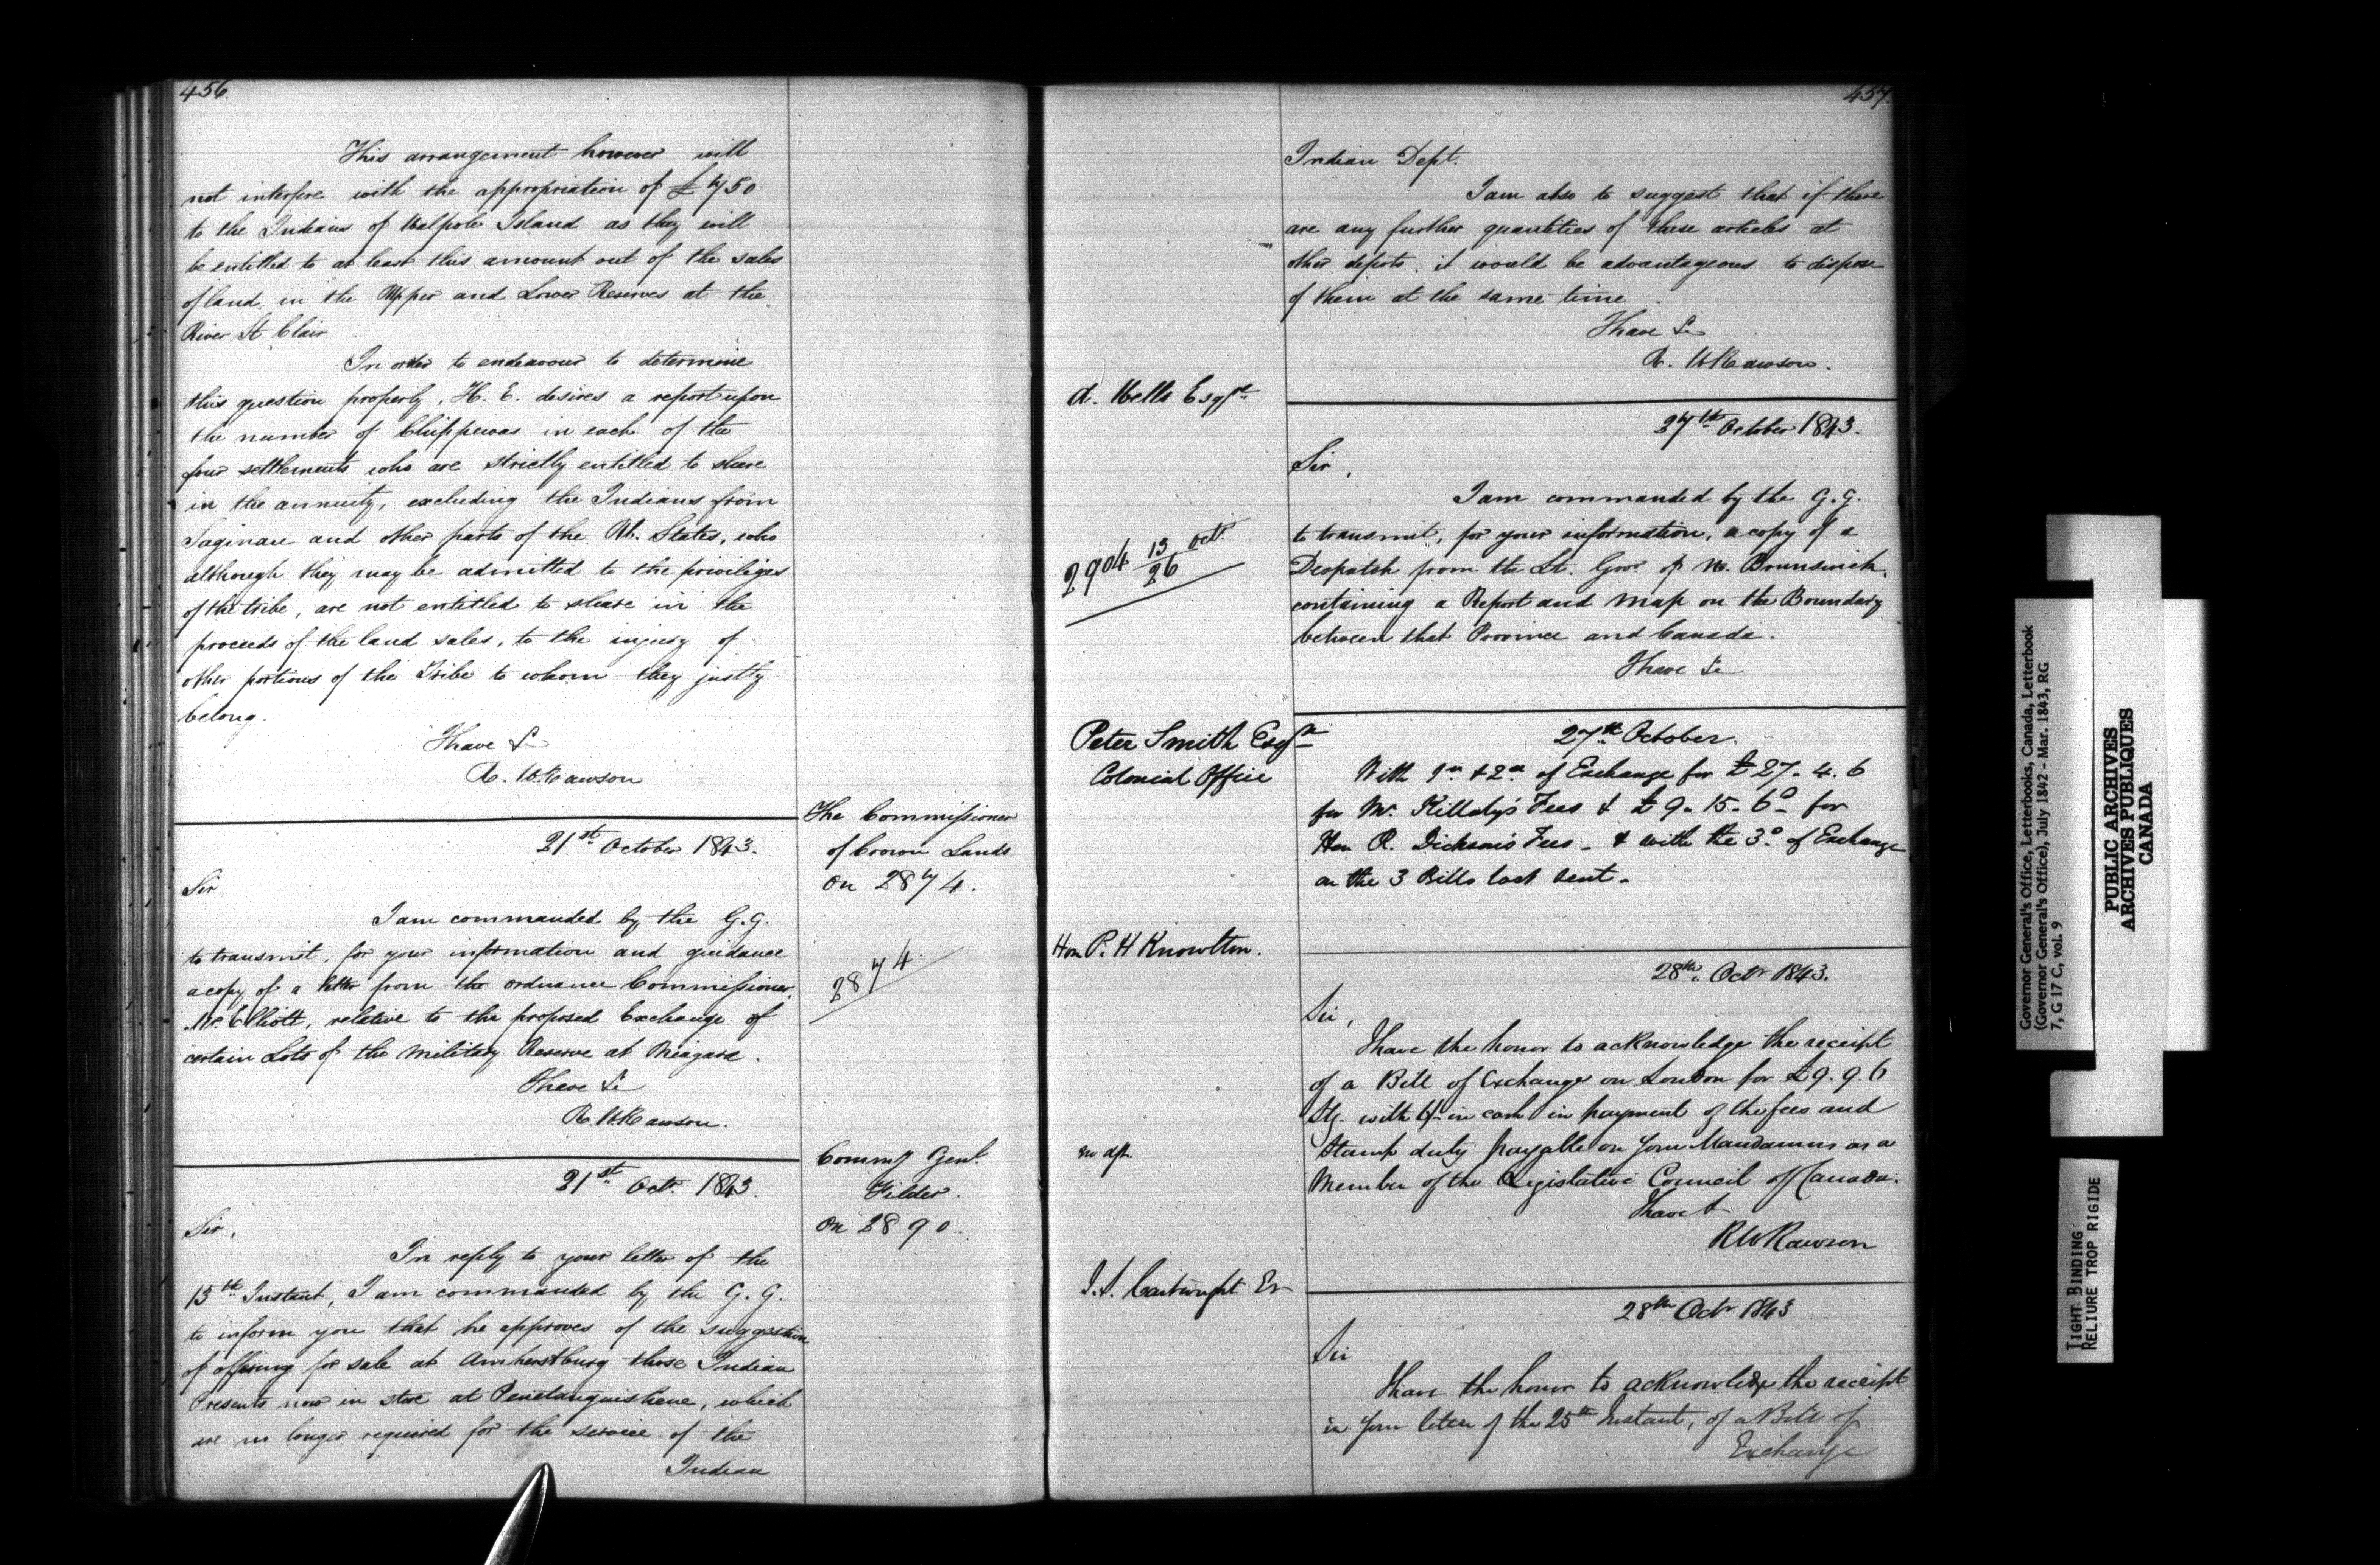 456.
This arrangement however will
not interfere with the appropriation of £750
to the Indians of Walpole Island as they will
be entitled to at least this amount out of the sales
of land in the Upper and Lower Reserves at the
River St Clair
In order to endeavour to determine
this question properly, H. E. desires a report upon
the number of Chippewas in each of the
four settlements who are strictly entitled to share
in the annuity, excluding the Indians from
Saginaw and other parts of the Un. States, who
although they may be admitted to the privileges
of the tribe, are not entitled to share in the
proceeds of the land sales, to the injury of
other portions of the Tribe to whom they justly
belong.
I have &c
R. W. Rawson
The Commissioner
of Crown Lands
on 2874.
21st October 1843.
Sir
I am commanded by the G.G.
to transmit, for your information and guidance
a copy of a letter from the Ordnance Commissioner,
Mr. Elliott, relative to the proposed Exchange of
certain Lots of the Military Reserve at Niagara.
I have &c
R. W. Rawson.
2874
Commy Genl.
Filder.
on 2890
21st Octr. 1843.
Sir,
In reply to your letter of the
13th Instant, I am commanded by the G. G.
to inform you that he approves of the suggestion
of offering for sale at Amherstburg those Indian
Presents now in store at Penetanguishene, which
are no longer required for the service of the
Indian
457.
Indian Dept.
I am also to suggest that if there
are any further quantities of these articles at
other depots, it would be advantageous to dispose
of them at the same time
I have &c
R. W. Rawson.
A. Wells Esqre
27th October 1843.
Sir,
I am commanded by the G.G.
to transmit, for your information, a copy of a
Despatch from the Lt. Govr. of N. Brunswick,
containing a Report and Map on the Boundary
between that Province and Canada.
I have &c
2904 13/26 Octr.
Peter Smith Esqre
Colonial Office
27th October.
With 1st & 2nd of Exchange for £27. 4. 6
for Mr. Killaly's Fees & £9. 15. 6 for
Hon R. Dickson's Fees - & with the 3d of Exchange
on the 3 Bills last sent -
Hon P. H Knowlton.
28th Octr 1843.
Sir,
I have the honor to acknowledge the receipt
of a Bill of Exchange on London for £9. 9. 6
Stg. with in cash in payment of the fees and
Stamp duty payable on your Mandamus as a
Member of the Legislative Council of Canada.
I have &
RWRawson
J. S. Cartwright Er
28th Octr 1843
Sir
I have the honor to acknowledge the receipt
in your letter of the 25th Instant, of a Bill of
Exchange
Governor General's Office, Letterbooks, Canada, Letterbook
(Governor General's Office), July 1842 - Mar. 1843, RG
7, G 17 C, vol. 9
PUBLIC ARCHIVES
ARCHIVES PUBLIQUES
CANADA
TIGHT BINDING
RELIURE TROP RIGIDE